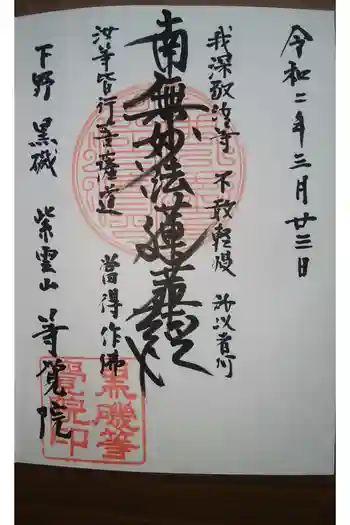 令和二年三月廿三日
我深敬汝等 不敢軽慢 所以者何
南無妙法蓮華経
汝等皆行菩薩道 當得作佛
下野 黒磯 紫雲山 等覚院
黒磯等
覺院印